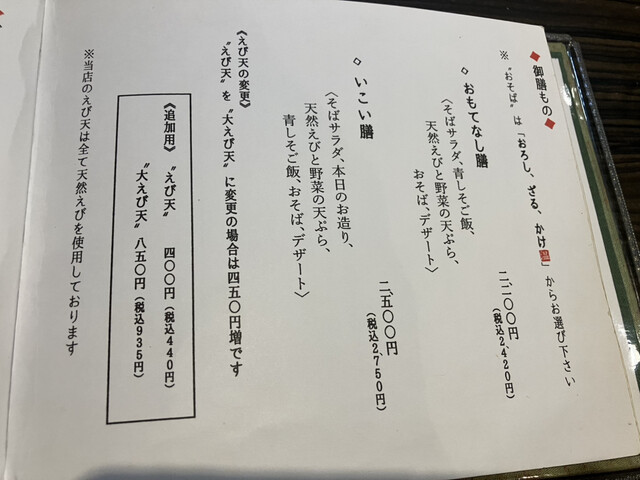 ◆御膳もの◆
※〝おそば〟は「おろし、ざる、かけ温」からお選び下さい
◇おもてなし膳
〈そばサラダ、青しそご飯、
天然えびと野菜の天ぷら、
おそば、デザート〉
二、二〇〇円
(税込2,420円)
◇いこい膳
〈そばサラダ、本日のお造り、
天然えびと野菜の天ぷら、
青しそご飯、おそば、デザート〉
二、五〇〇円
(税込2,750円)
《えび天の変更》
〝えび天〟を〝大えび天〟に変更の場合は四五〇円増です
《追加用》〝えび天〟 四〇〇円(税込440円)
〝大えび天〟 八五〇円(税込935円)
※当店のえび天は全て天然えびを使用しております